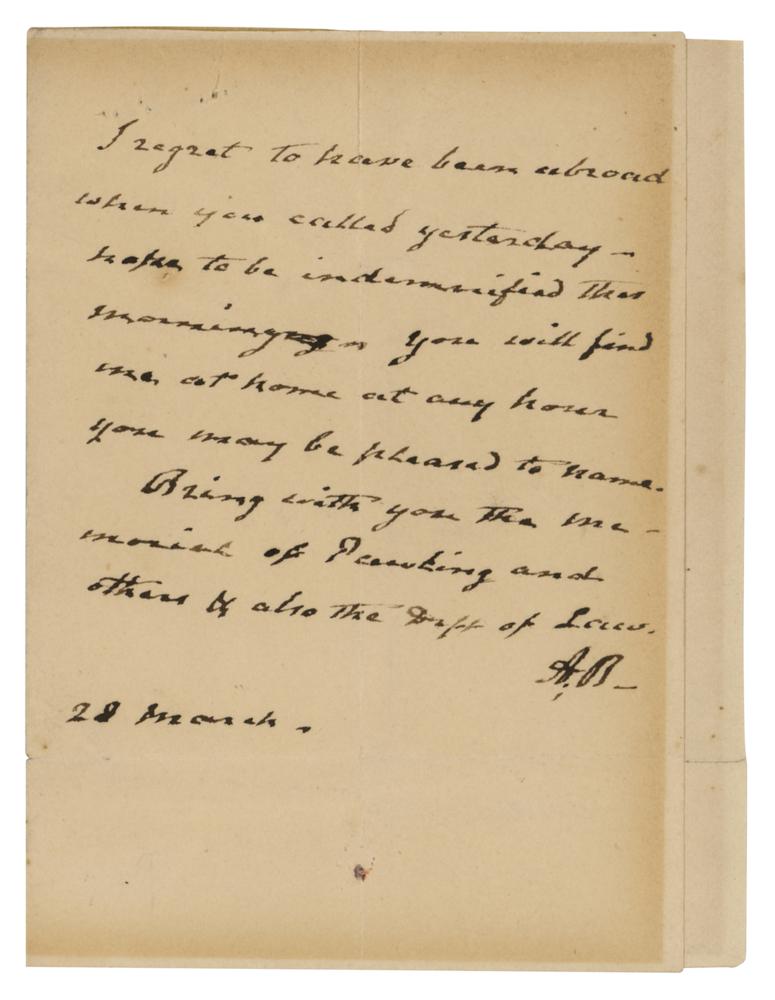 I regret to have been abroad
when you called yesterday –
hope to be indemnified this
morning – you will find
me at home at any hour
you may be pleased to name.
Bring with you the me-
morial of and
others & also the of Law.
A.B –
28 March.